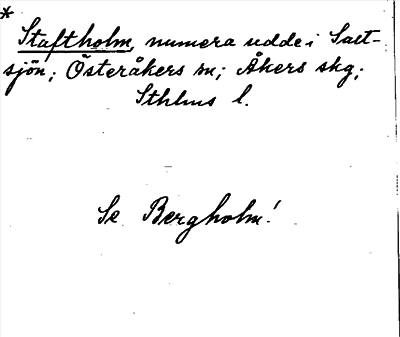 *
Staftholm, numera udde i Salt-
sjön; Österåkers sn; Åkers skg;
Sthlms l.
Se Bergholm!